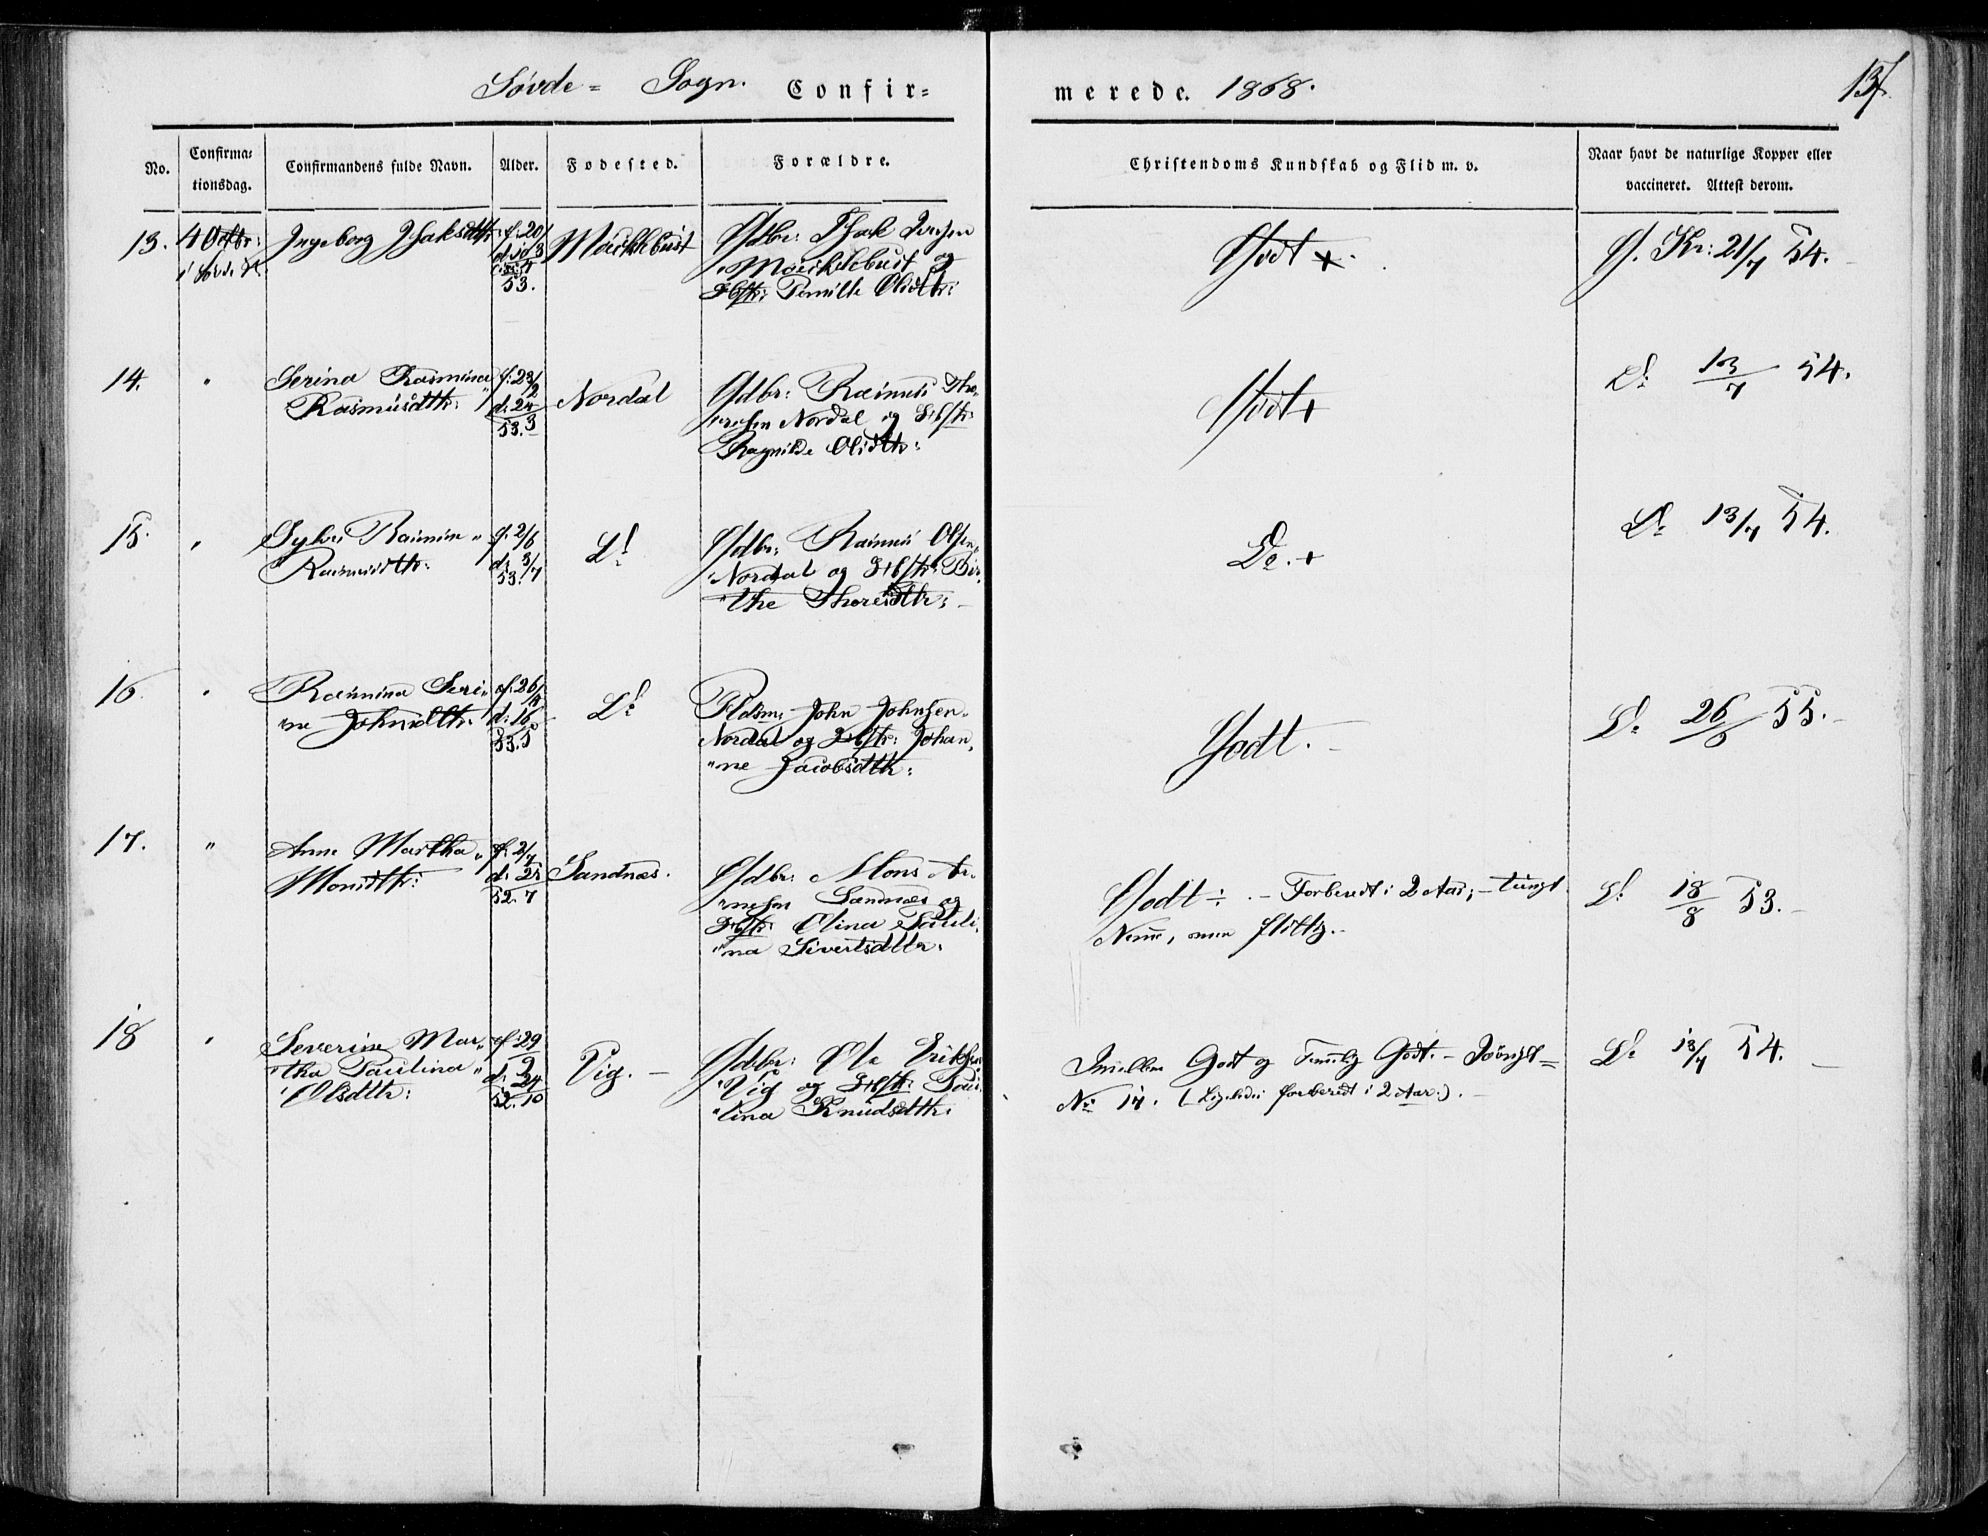 Søvde= Sogn. Confir=
merede. 1868.
137.
No.
Confirma=
tionsdag.
Confirmandens fulde Navn.
Alder.
Fødested.
Forældre.
Christendoms Kundskab og Flid m. v.
Naar havt de naturlige Kopper eller
vaccineret. Attest derom.
13. 4 Octbr: Ingeborg Isaksdttr: f: 20/
53.
Gdbr: Isak
og
Pernille Olsdtr:
Godt +.
G. Kr: 21/7 54.
14. " Serina Rasmina" f: 23/2
Rasmusdttr: d: 24/3
53.
Nordal
Gdbr: Rasmus Tho=
resen Nordal og Hstr:
Ragnilde Olsdttr:
Godt +
Do 13/7 54.
15. " Rasmine" f: 2/6
Rasmusdttr: d: 3/7
53.
Do
Gdbr: Rasmus Olsen
Nordal og Hstr: Bir=
"the Thoresdttr:
Do. +
Do 13/7 54.
16. " Rasmina Seri= f: 26/
ne Johnsdttr: d: 16
53. 5
Do
John Johnsen
Nordal og Hstr: Johan=
"ne Jacobsdttr:
Godt.
Do 26/6 55.
17. " Anne Martha" f: 2/7
Monsdttr: d: 25
52. 7
Sandnæs.
Gdbr: Mons Ar=
"nesen Sandnæs og
Hstr: Olina Pauli=
"na Sivertsdttr:
Godt ÷. – Forberedt i 2 Aar; – tungt
Nemme, men flittig.
Do 18/8 53.
18 " Severine Mar= f: 29/9
"tha Paulina" d: 24
"Olsdttr: 52. 10
Vig.
Gdbr: Ole Eriksen
"Vig og Hstr: Pau=
"lina Knudsdttr:
Imellem Godt og Godt. – Iøvrigt =
No 17. (Ligeledes forberedt i 2 Aar.).
Do 13/7 54.